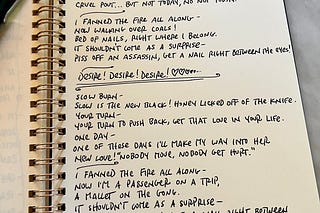 CRUEL POUT... BUT NOT TODAY, NO NOT TODAY.
I FANNED THE FIRE ALL ALONG–
NOW WALKING OVER COALS!
BED OF NAILS, RIGHT WHERE I BELONG.
IT SHOULDN'T COME AS A SURPRISE–
PISS OFF AN ASSASSIN, GET A NAIL RIGHT BETWEEN THE EYES!
DESIRE! DESIRE! DESIRE! ♡♡♡...
SLOW BURN–
SLOW IS THE NEW BLACK! HONEY LICKED OFF OF THE KNIFE.
YOUR TURN–
YOUR TURN TO PUSH BACK, GET THAT LOVE IN YOUR LIFE.
ONE DAY–
ONE OF THESE DAYS I'LL MAKE MY WAY INTO HER
NEW LOVE! "NOBODY MOVE, NOBODY GET HURT."
I FANNED THE FIRE ALL ALONG–
NOW I'M A PASSENGER ON A TRIP,
A MALLET ON THE GONG.
IT SHOULDN'T COME AS A SURPRISE–
A NAIL RIGHT BETWEEN